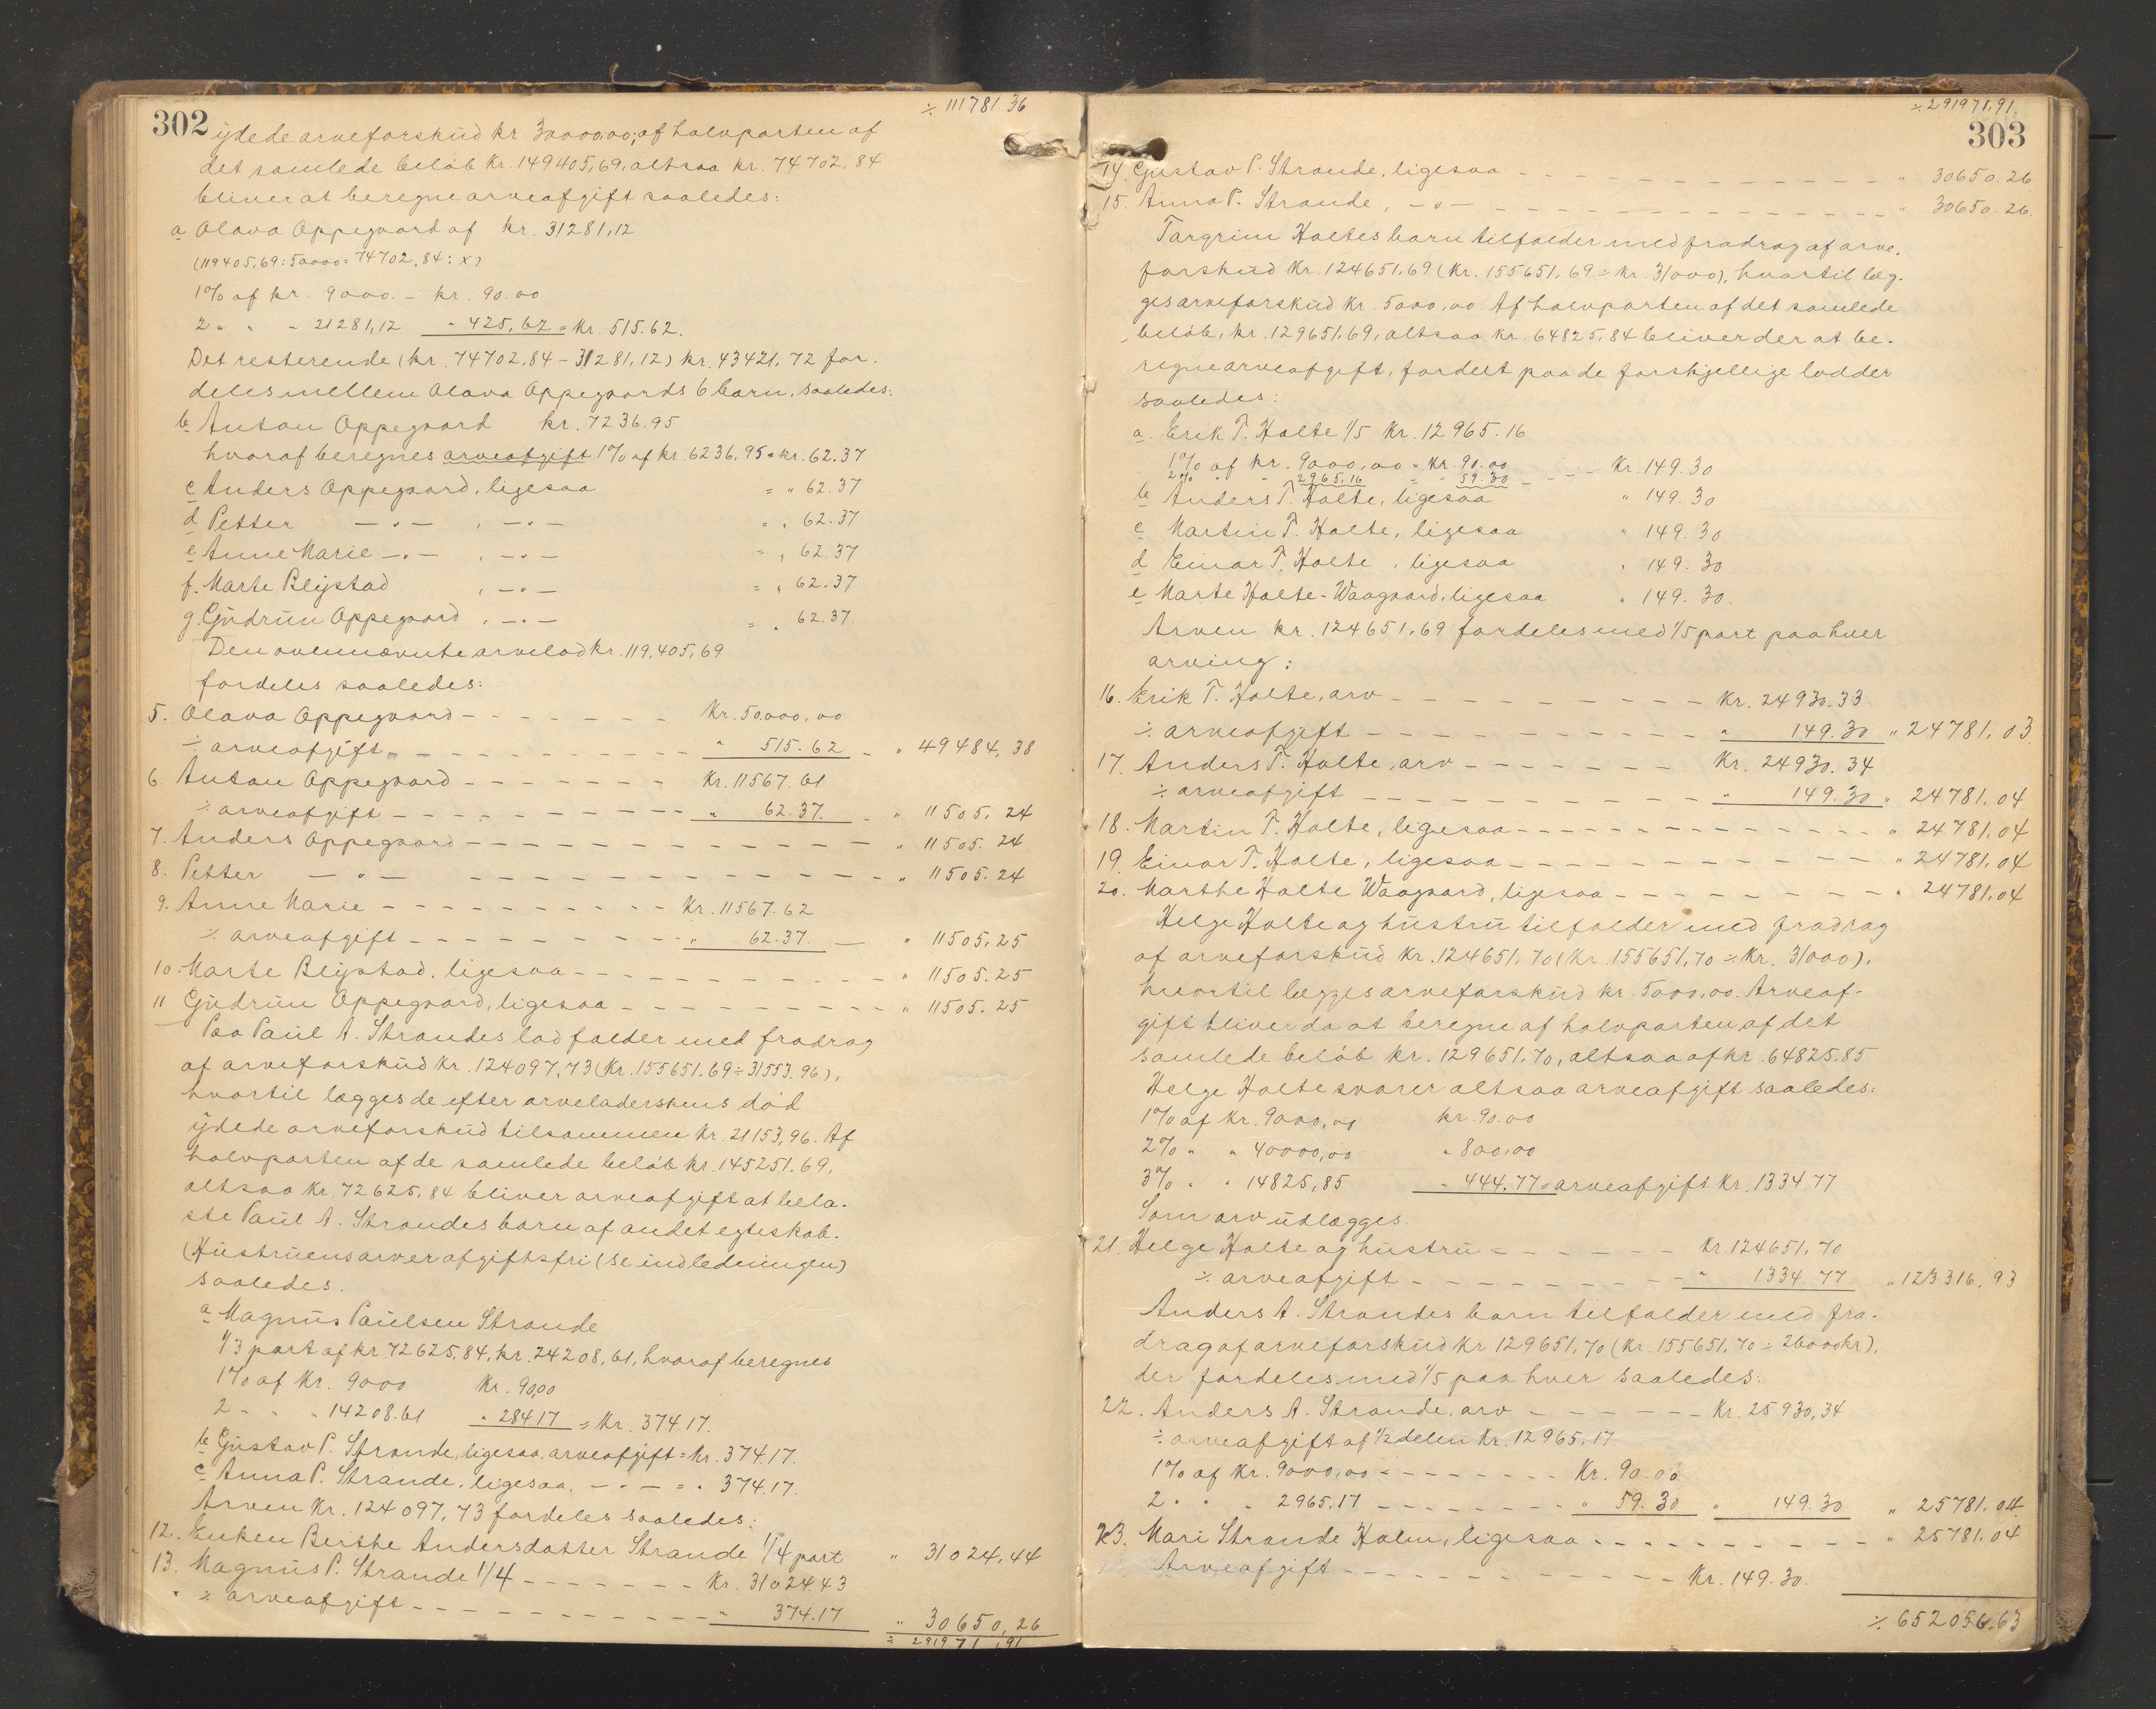 ÷ 111781.36
302
ydede arveforskud kr. 30000,00; af halvparten af
det samlede beløb kr. 149405,69, altsaa kr. 74702,84
bliver at beregne arveafgift saaledes:
a Olava Oppegaard af kr. 31281,12
(119405,69 : 50000 = 74702,84 : x)
1% af kr. 9000. - kr. 90.00
2 " " - 21281,12 " 425,62 = kr. 515.62.
Det resterende (kr. 74702,84 - 31281,12) kr. 43421,72 for-
deles mellem Olava Oppegaards 6 barn, saaledes:
b Antan Oppegaard kr. 7236.95
hvoraf beregnes arveafgift 1% af kr. 6236,95 = kr. 62.37
c Anders Oppegaard, ligesaa = " 62.37
d Petter — " — , — " — = " 62.37
e Anne Marie — " — , — " — = " 62.37
f. Marte Blystad , — " — = " 62.37
g. Gudrun Oppegaard , — " — = " 62.37
Den ovennævnte arvelod kr. 119.405,69
fordeles saaledes:
5. Olava Oppegaard - - - - - - - Kr. 50.000,00
÷ arveafgift - - - - - - - - - " 515.62 - " 49484,38
6. Antan Oppegaard - - - - - - - Kr. 11567.61
÷ arveafgift - - - - - - - - - " 62.37. - " 11505.24
7. Anders Oppegaard - - - - - - - - - - - - " 11505.24
8. Petter — " — - - - - - - - - - - - - " 11505.24
9. Anne Marie - - - - - - - - - - Kr. 11567.62
÷ arveafgift - - - - - - - - - " 62.37. — " 11505,25
10. Marte Blystad, ligesaa - - - - - - - - - - " 11505.25
11 Gudrun Oppegaard, ligesaa - - - - - - - - - " 11505.25
Paa Paul A. Strandes lod falder med fradrag
af arveforskud kr. 124097,73 (Kr. 155651.69 ÷ 31553.96),
hvortil lægges de efter arveladerskens død
ydede arveforskud tilsammen kr. 21153,96. Af
halvparten af de samlede beløb kr. 145251.69,
altsaa kr. 72625,84 bliver arveafgift at bela-
ste Paul A. Strandes barn af andet egteskab.
(Hustruens arver afgiftsfri (se indledningen)
saaledes.
a Magnus Paulsen Strande
1/3 part af kr. 72625,84, kr. 24208,61, hvoraf beregnes
1% af Kr. 9000 Kr. 90,00
2 " " " 14208.61 " 284.17 = Kr. 374.17.
b Gustav P. Strande, ligesaa, arveafgift = kr. 374.17.
c Anna P. Strande, ligesaa, — " — = " 374.17.
Arven Kr. 124097,73 fordeles saaledes:
12. Enken Berthe Andersdatter Strande 1/4 part " 31024,44
13. Magnus P. Strande 1/4 - - - - - - - Kr. 31024.43
" ÷ arveafgift - - - - - - - - - - " 374.17 " 30650,26
÷ 291971,91
÷ 291971,91.
303
14. Gustav P. Strande, ligesaa - - - - - - - - - - - - - " 30650.26
15. Anna P. Strande, — " — - - - - - - - - - - - - - " 30650.26.
Targrim Holtes barn tilfalder med fradrag af arve-
forskud Kr. 124651.69 (Kr. 155651,69 ÷ Kr. 31000), hvortil læg-
ges arveforskud kr. 5000,00. Af halvparten af det samlede
beløb, kr. 129651.69, altsaa kr. 64825,84 bliver der at be-
regne arveafgift, fordelt paa de forskjellige lodder
saaledes:
a. Erik T. Holte 1/5 Kr. 12965.16
1% af kr. 9000,00 = Kr. 90.00
2% " " 2965.16 = " 59.30 - - - Kr. 149.30
b Anders T. Holte, ligesaa " 149.30
c Martin T. Holte, ligesaa " 149.30
d Einar T. Holte, ligesaa " 149.30
e Marte Holte-Waagaard, ligesaa " 149.30.
Arven kr. 124651,69 fordeles med 1/5 part paa hver
arving:
16. Erik T. Holte, arv - - - - - - - - - - Kr. 24930.33
÷ arveafgift - - - - - - - - - - " 149.30 " 24781,03.
17. Anders T. Holte, arv - - - - - - - Kr. 24930.34
÷ arveafgift - - - - - - - - - - " 149.30 " 24781.04
18. Martin T. Holte, ligesaa - - - - - - - - - - - - - " 24781.04
19. Einar T. Holte, ligesaa - - - - - - - - - - - - - " 24781.04
20. Marthe Holte Waagaard, ligesaa - - - - - - - - - " 24781.04
Helge Holte og hustru tilfalder med fradrag
af arveforskud Kr. 124651,70 (Kr. 155651,70 ÷ Kr. 31000),
hvortil lægges arveforskud kr. 5000,00. Arveaf-
gift bliver da at beregne af halvparten af det
samlede beløb kr. 129651,70, altsaa af kr. 64825.85
Helge Holte svarer altsaa arveafgift saaledes:
1% af Kr. 9000,00 kr. 90.00
2% " " 40000,00 " 800,00
3% " " 14825,85 " 444.77 = arveafgift Kr. 1334.77
Som arv udlægges
21. Helge Holte og hustru = - - - - - - Kr. 124651,70
÷ arveafgift - - - - - - - - - " 1334.77 " 123316,93
Anders A. Strandes barn tilfalder med fra-
drag af arveforskud kr 129651,70 (Kr. 155651,70 ÷ 26000 kr),
der fordeles med 1/5 paa hver saaledes:
22. Anders A. Strande, arv - - - - - - - Kr. 25930,34
÷ arveafgift af 1/2 delen Kr. 12965.17
1% af Kr. 9000,00 - - - - - - - - Kr. 90.00
2 " " " 2965.17 - - - - - - - - " 59.30 " 149.30 " 25781.04
23. Mari Strande Holm, ligesaa - - - - - - - - - - " 25781.04
Arveafgift - - - - - - - - - - - - Kr. 149.30.
÷ 652056.63